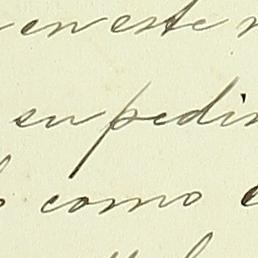 en este
su pedi
como